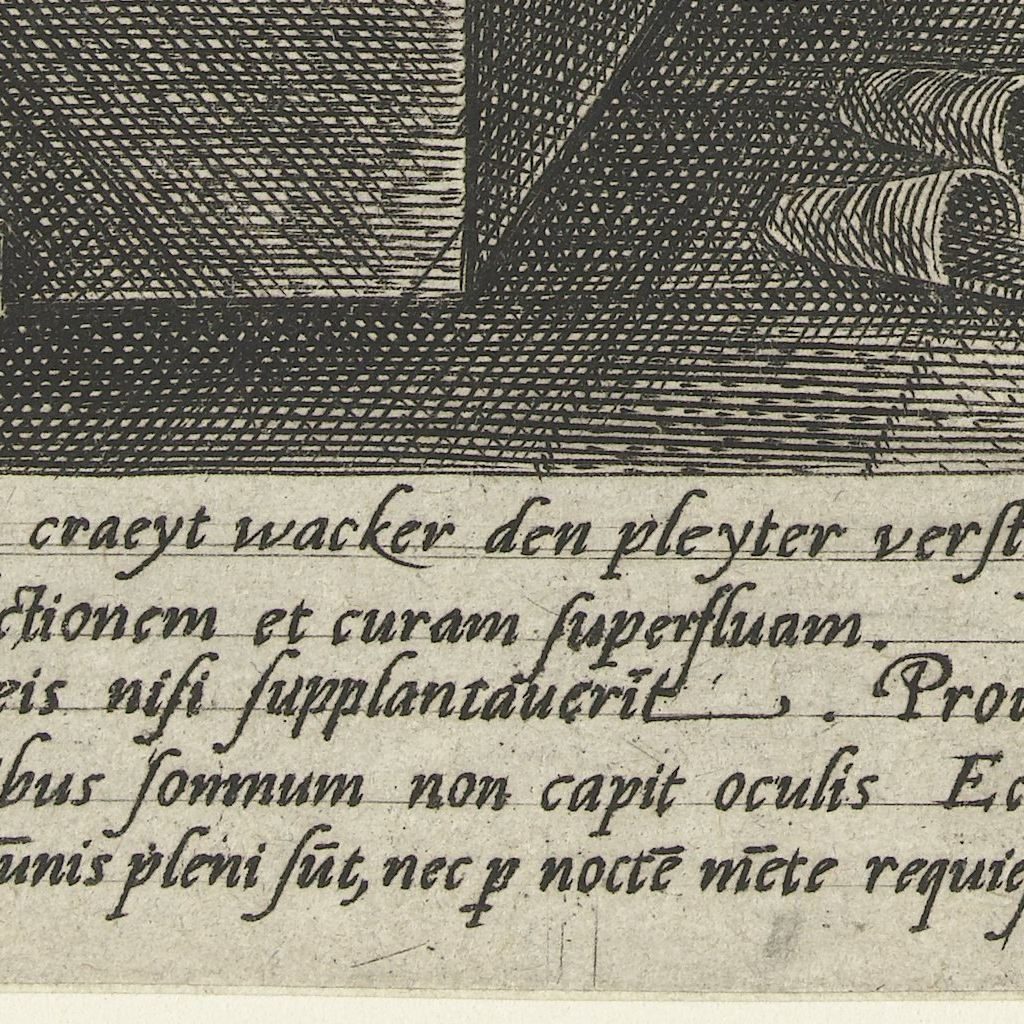 craeyt wacker den pleyter verſt
ctionem et curam ſuperfluam.
eis niſi ſupplantauerīt. Prou
bus ſomnum non capit oculis Ec
ūnis pleni ſūt, nec ꝑ noctē mēte requie